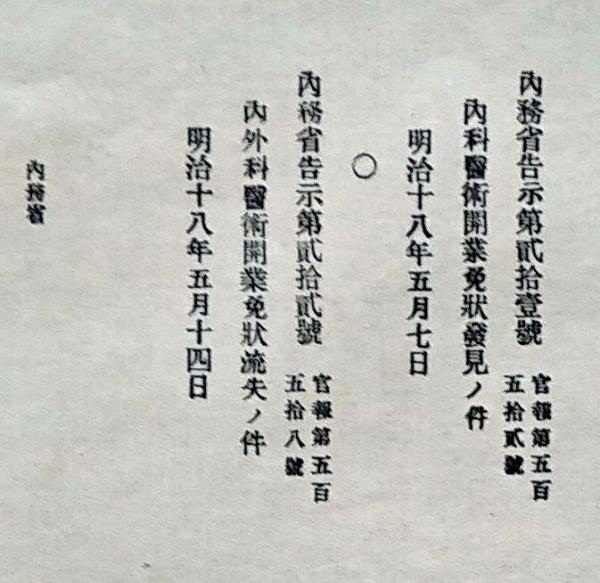 內務省告示第貳拾壹號
官報第五百
五拾貳號
內科醫術開業免狀發見ノ件
明治十八年五月七日
○
內務省告示第貳拾貳號
官報第五百
五拾八號
內外科醫術開業免狀流失ノ件
明治十八年五月十四日
內務省